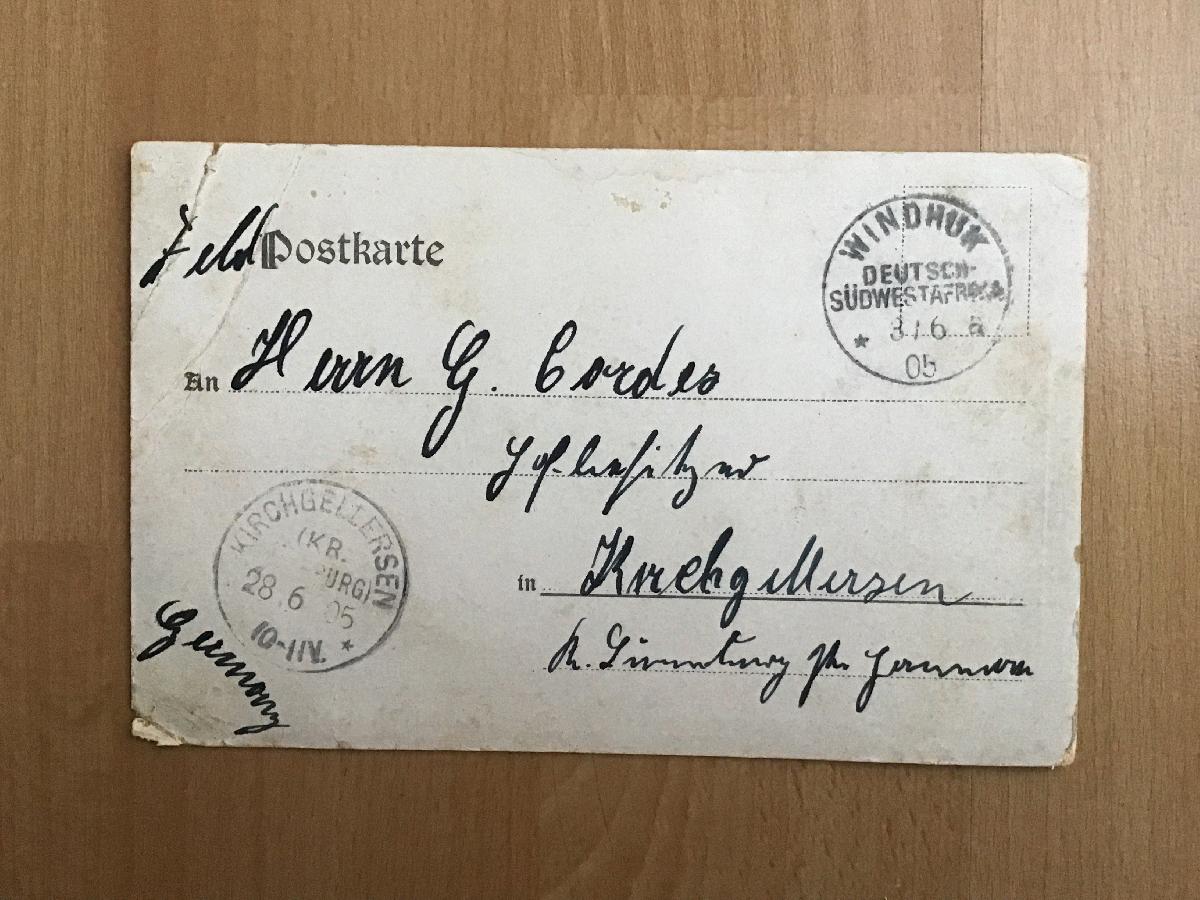 Feld Postkarte
WINDHUK
DEUTSCH-
SÜDWESTAFRIKA
* 3/6 a
05
An Herrn G. Cordes
Hofbesitzer
KIRCHGELLERSEN
(KR.
BURG)
28.6 05
10-11V. *
in Kirchgellersen
Kr. Lüneburg Pr. Hannover
Germany